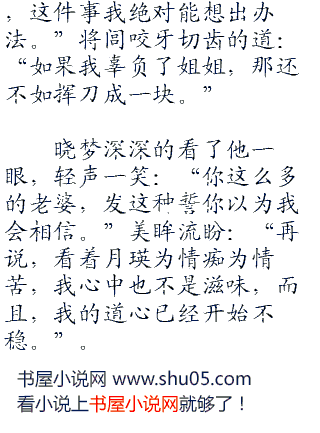 ，这件事我绝对能想出办
法。”将闾咬牙切齿的道：
“如果我辜负了姐姐，那还
不如挥刀成一块。”
晓梦深深的看了他一
眼，轻声一笑：“你这么多
的老婆，发这种誓你以为我
会相信。”美眸流盼：“再
说，看着月瑛为情痴为情
苦，我心中也不是滋味，而
且，我的道心已经开始不
稳。”。
书屋小说网 www.shu05.com
看小说上书屋小说网就够了！